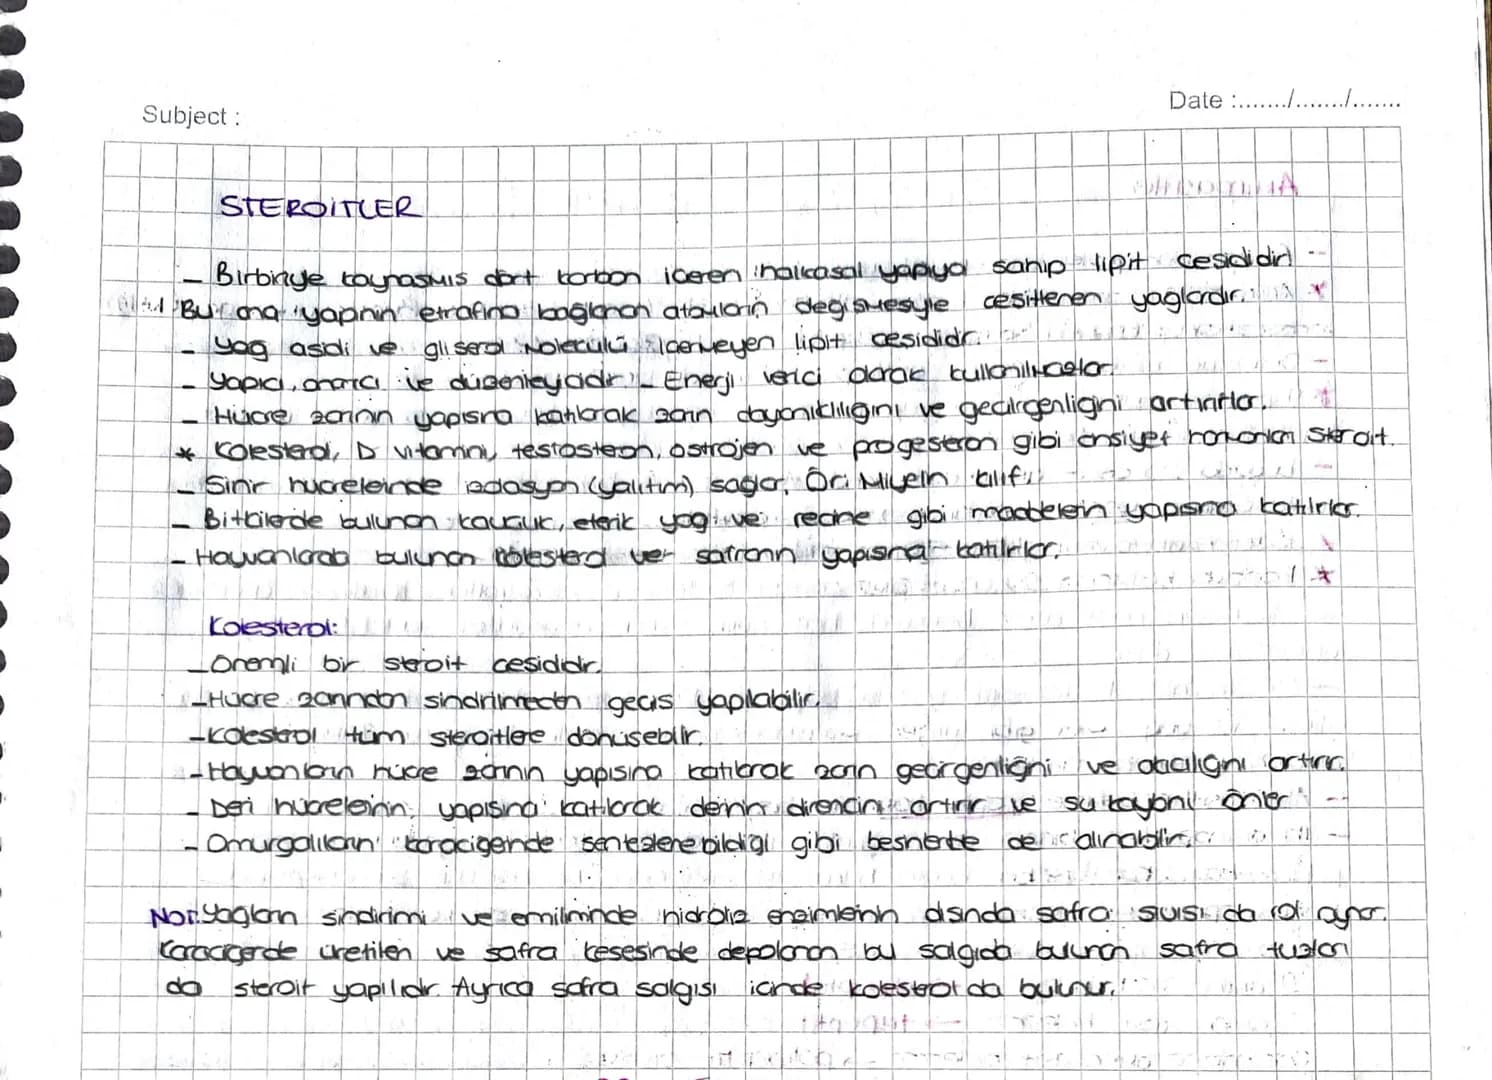 Subject :
Date :......./......./.......
STEROİTLER
- Birbiriyle kaynasmıs dört karbon iceren halkasal yapıya sahip lipit cesididir.
Bu ana yapının etrafına bağlanan atomların degismesiyle cesitlenen yaglardır.
- Yag asidi ve gliserol molekülü icermeyen lipit cesididir.
- Yapıcı, onarıcı ve düzenleyicidir. - Enerji verici olarak kullanılmazlar.
- Hücre zarının yapısına katılarak zarın dayanıklılıgını ve gecirgenligini artırırlar.
* Kolesterol, D vitamini, testosteron, ostrojen ve progesteron gibi cinsiyet hormonları steroit.
- Sinir hucrelerinde izolasyon (yalıtım) saglar. Ör: Miyelin kılıf
- Bitkilerde bulunan kaucuk, eterik yag ve recine gibi maddelerin yapısına katılırlar.
- Hayvanlarda bulunan kolesterol ve safranın yapısına katılırlar.
Kolesterol:
- Onemli bir steroit cesididir.
- Hücre zarından sindirilmeden gecis yapılabilir.
- Kolestrol tüm steroitlere dönüsebilir.
- Hayvanların hücre zarının yapısına katılarak zarın gecirgenligini ve akıcılıgını artırır.
- Deri hücrelerinin yapısına katılarak derinin direncini artırır ve su kaybını önler
- Omurgalıların karacigerinde sentezlenebildigi gibi besinlerle de alınabilir.
NOT: Yagların sindirimi ve emiliminde hidroliz enzimlerinin dısında safra sıvısı da rol oynar.
Karacigerde üretilen ve safra kesesinde depolanan bu salgıda bulunan safra tuzları
da steroit yapılıdır. Ayrıca safra salgısı icinde kolestrol da bulunur.